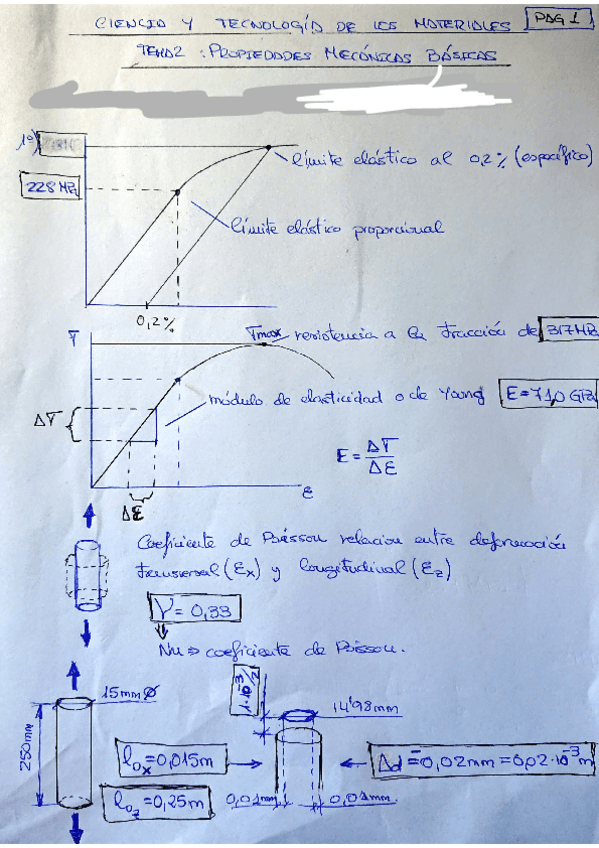 CIENCIA Y TECNOLOGÍA DE LOS MATERIALES PAG 1
TEMA2 : PROPIEDADES MECÁNICAS BÁSICAS
1º)
límite elástico al 0,2% (específico)
228 MPa
límite elástico proporcional
0,2%
σ
σmax resistencia a la tracción de 317 MPa
módulo de elasticidad o de Young E=71,0 GPa
Δσ
E = Δσ/Δε
ε
Δε
Coeficiente de Poisson relacion entre deformación
transversal (εx) y longitudinal (εz)
ν = 0,33
Nu ⇒ coeficiente de Poisson.
1·10⁻³/2
15mm Ø
14'98mm
250mm
lox=0,015m
Δd=-0,02mm=0,02·10⁻³m
loz=0,25m
0,01mm
0,01mm.